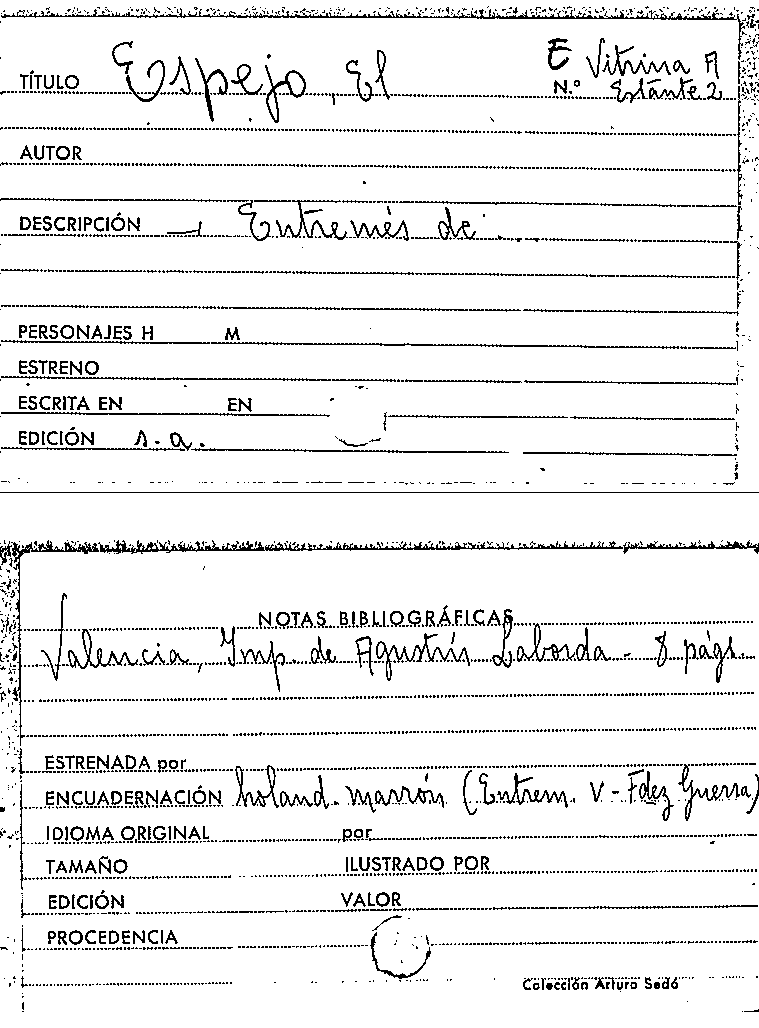 TÍTULO Espejo, El E Vitrina A
N.º Estante 2
AUTOR
DESCRIPCIÓN Entremés de
PERSONAJES H M
ESTRENO
ESCRITA EN EN
EDICIÓN s.a.
NOTAS BIBLIOGRÁFICAS
Valencia, Imp. de Agustín Laborda - 8 págs.
ESTRENADA por
ENCUADERNACIÓN holand. marrón (Entrem. V - Fdez Guerra)
IDIOMA ORIGINAL por
TAMAÑO ILUSTRADO POR
EDICIÓN VALOR
PROCEDENCIA
Colección Arturo Sedó